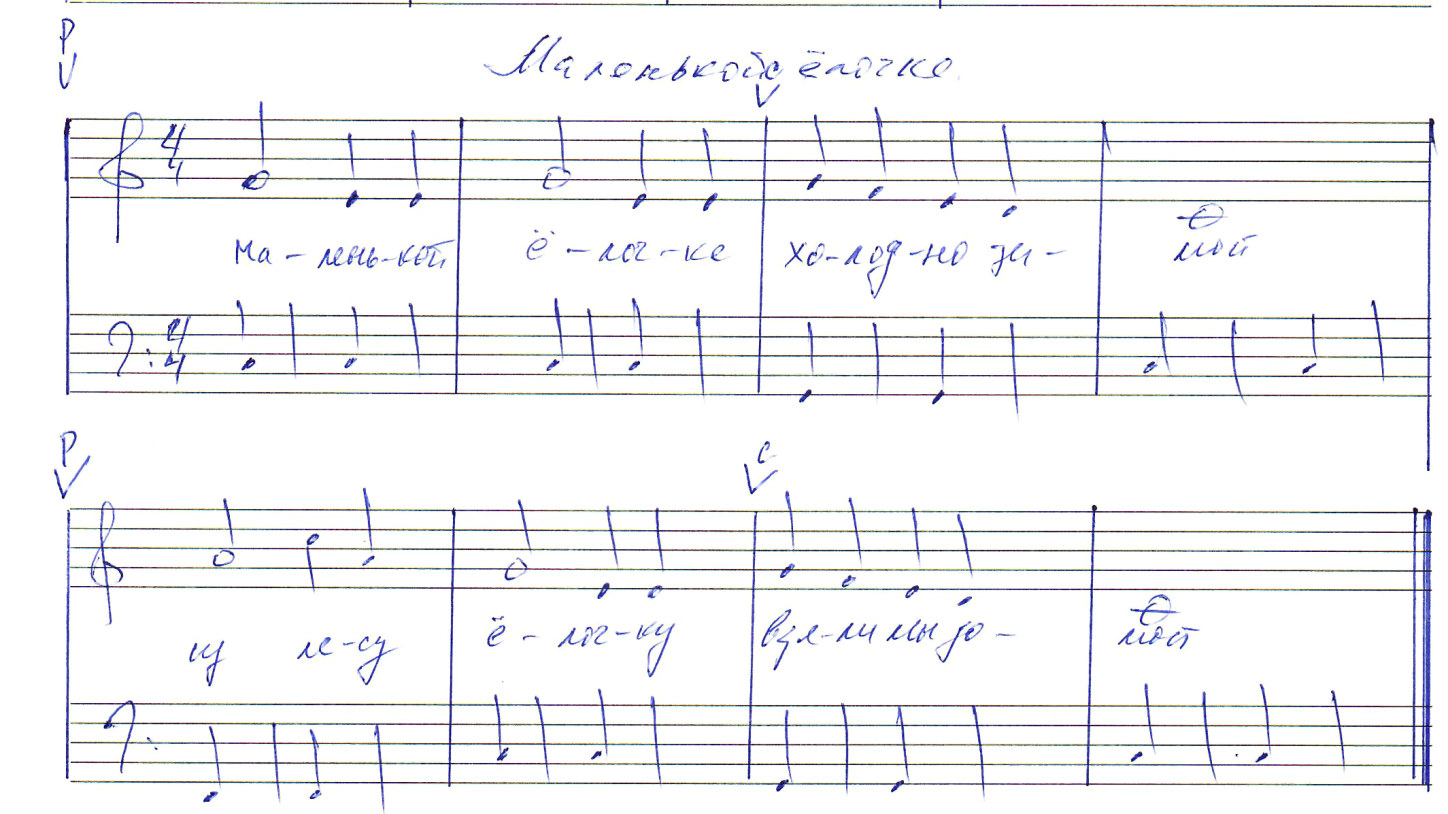 Р
Маленькой ёлочке
с
4 4
ма - лень-кой ё - лоч - ке хо-лод-но зи - мой
4 4
Р
с
из ле-су ё - лоч-ку взя-ли мы до - мой